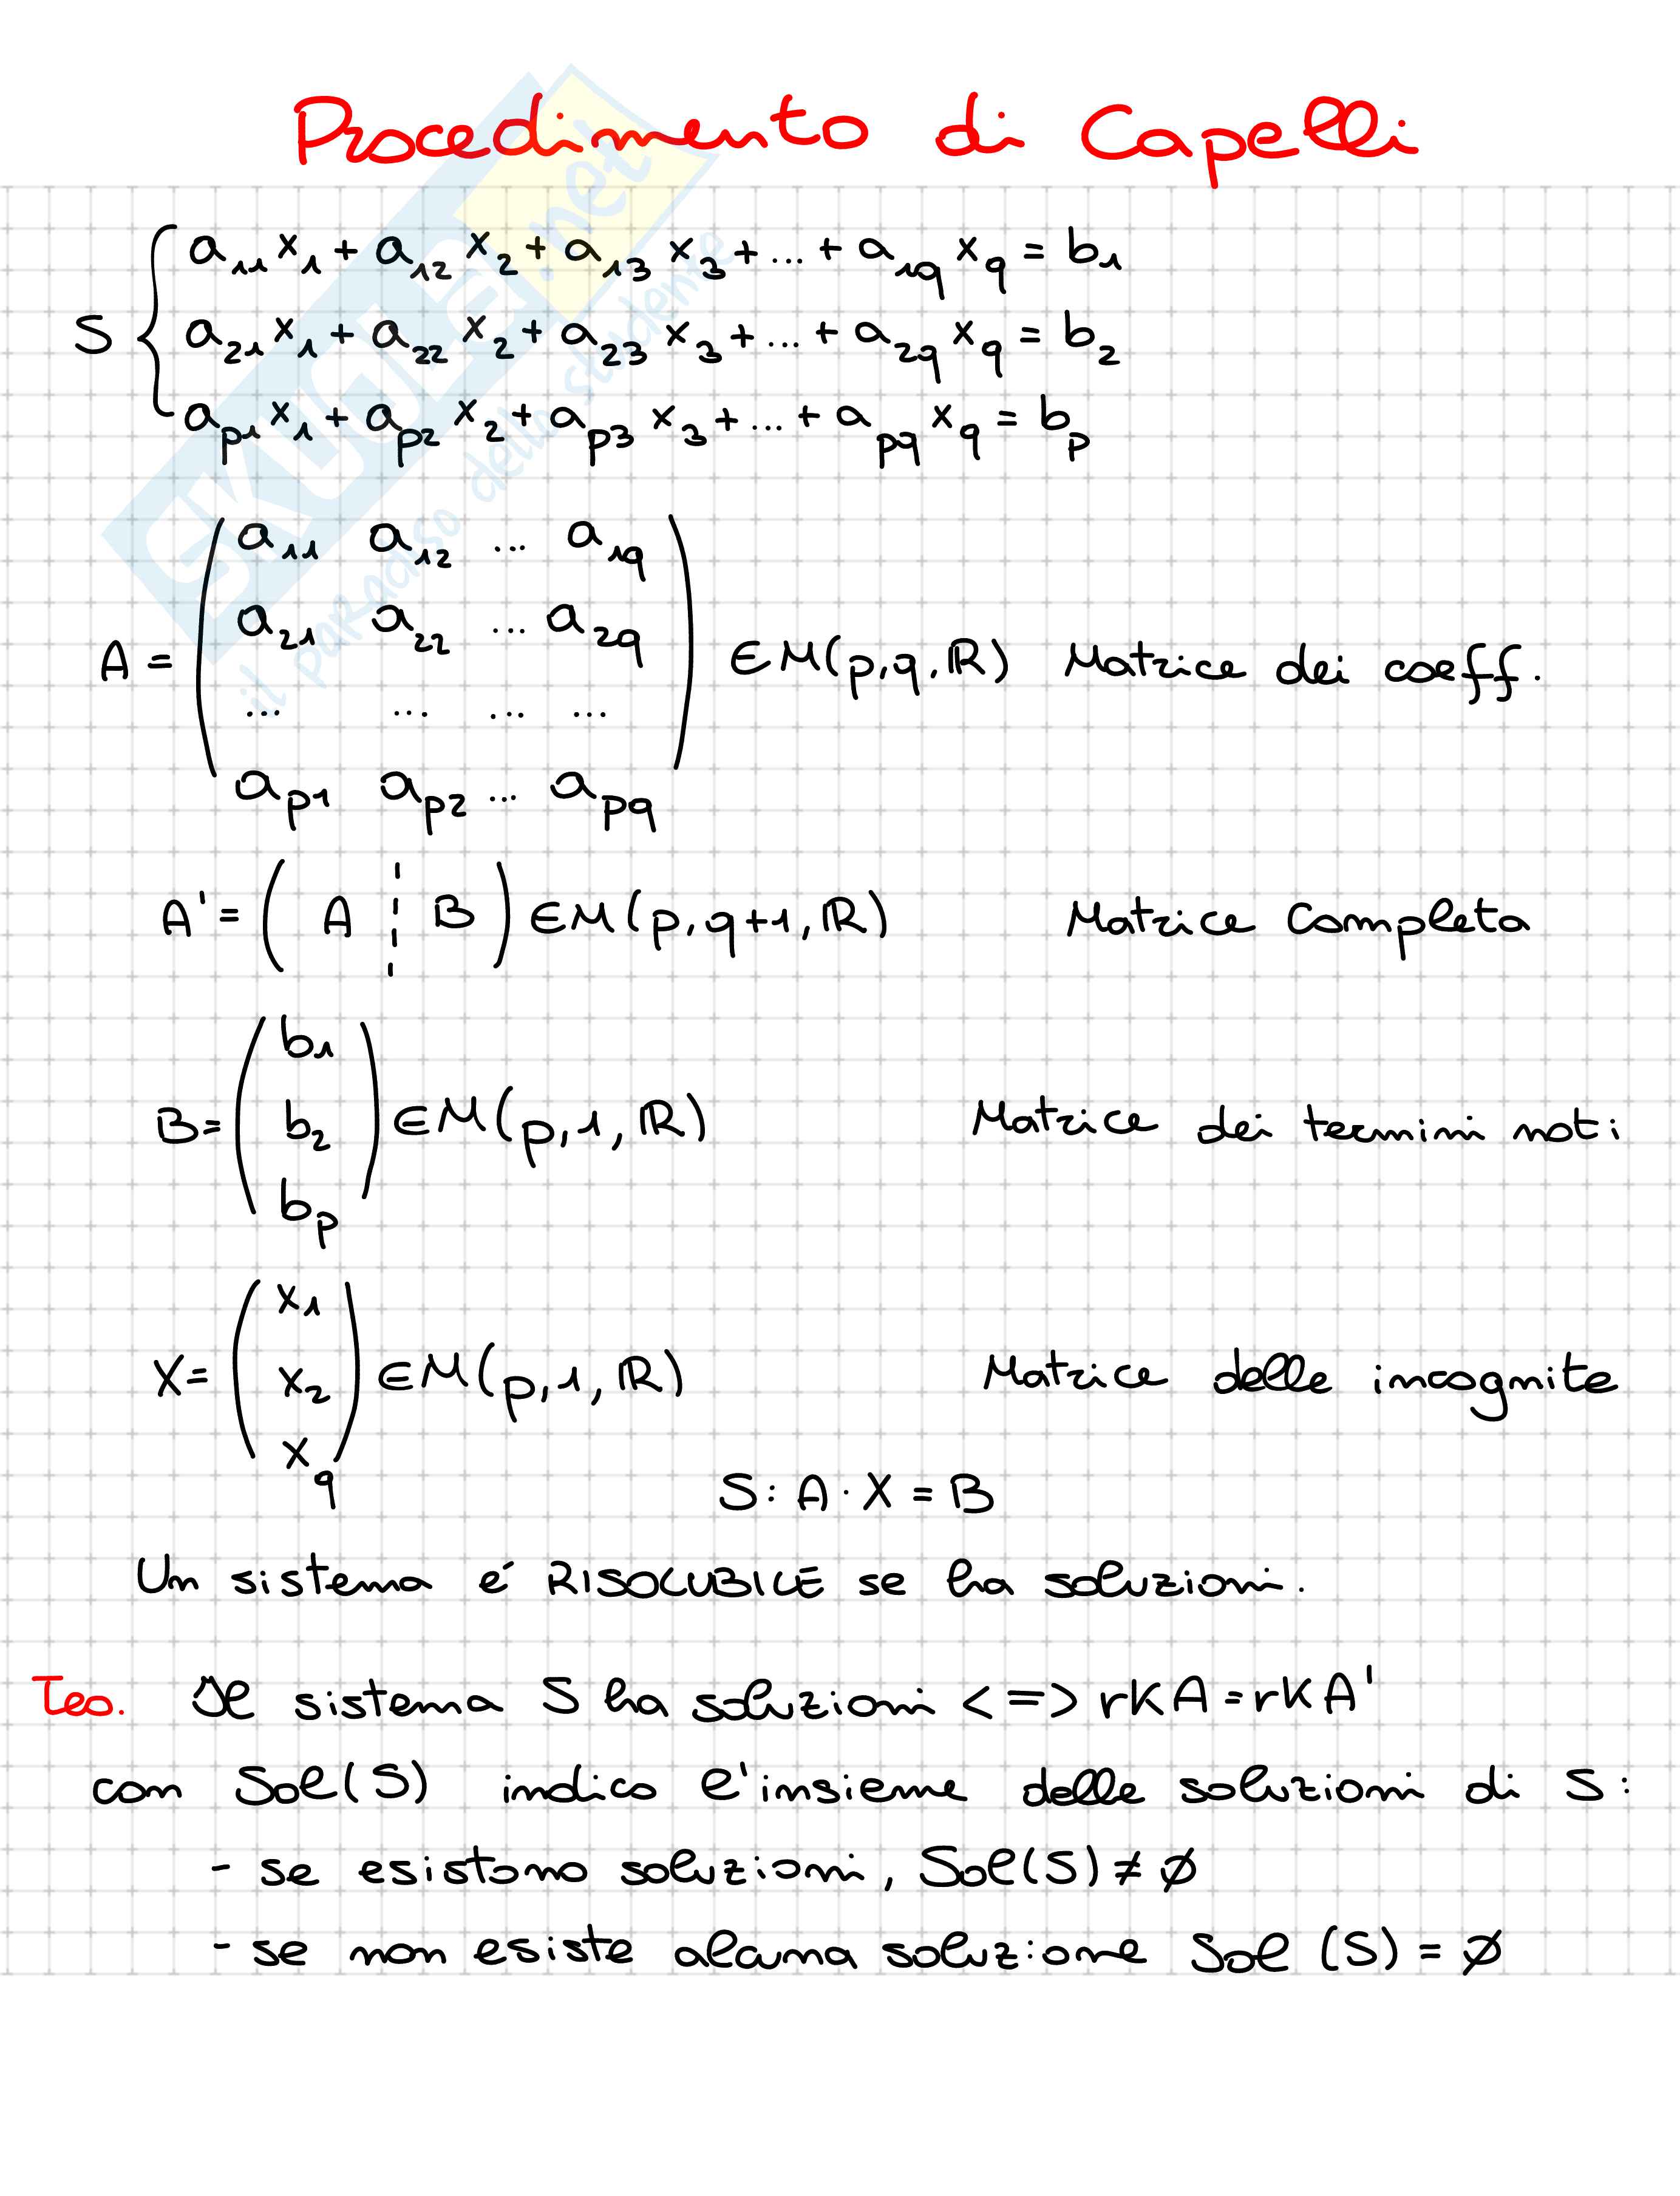 Procedimento di Capelli
S { a₁₁x₁ + a₁₂x₂ + a₁₃x₃ + ... + a₁qxq = b₁
a₂₁x₁ + a₂₂x₂ + a₂₃x₃ + ... + a₂qxq = b₂
ap₁x₁ + ap₂x₂ + ap₃x₃ + ... + apqxq = bp
a₁₁ a₁₂ ... a₁q
a₂₁ a₂₂ ... a₂q
A = ∈ M(p,q,ℝ) Matrice dei coeff.
... ... ... ...
ap₁ ap₂ ... apq
A' = ( A ¦ B ) ∈ M(p,q+1,ℝ) Matrice Completa
b₁
B = b₂ ∈ M(p,1,ℝ) Matrice dei termini noti
bp
x₁
X = x₂ ∈ M(p,1,ℝ) Matrice delle incognite
xq
S: A · X = B
Un sistema é RISOLUBILE se ha soluzioni.
Teo. Il sistema S ha soluzioni <=> rKA = rKA'
con Sol(S) indico l'insieme delle soluzioni di S:
- se esistono soluzioni, Sol(S) ≠ ∅
- se non esiste alcuna soluzione Sol (S) = ∅
SKUOLA.net
il paradiso dello studente